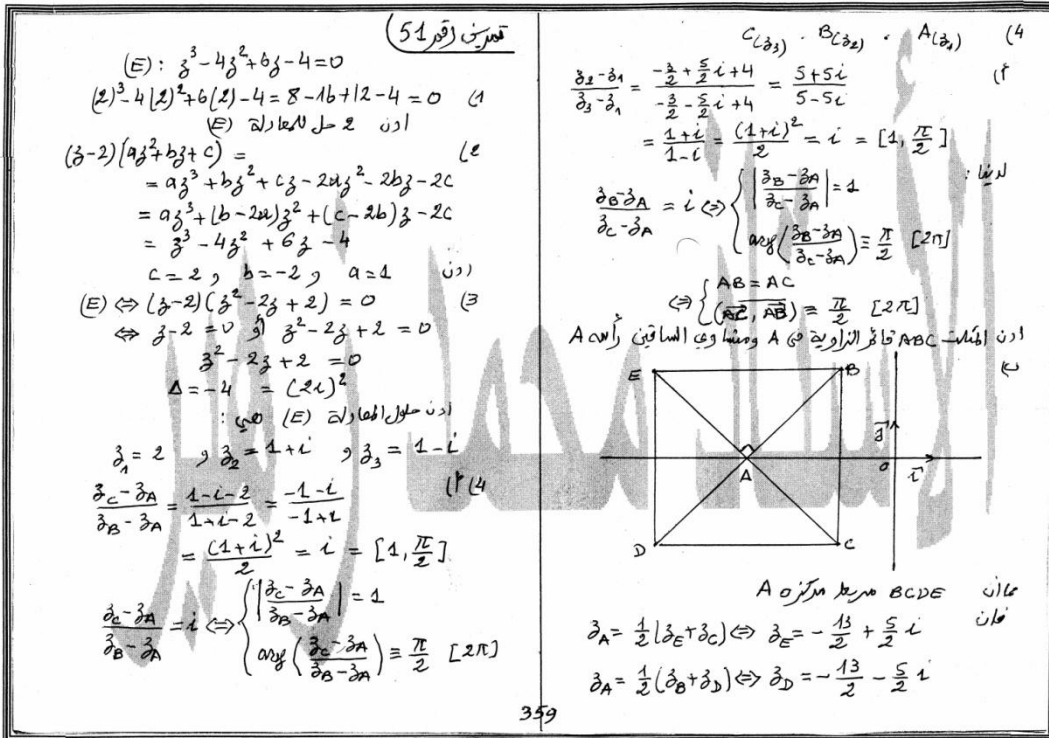 تمرين رقم 51
(E): z³ - 4z² + 6z - 4 = 0
1) (2)³ - 4(2)² + 6(2) - 4 = 8 - 16 + 12 - 4 = 0
اذن 2 حل للمعادلة (E)
2) (z-2)(az²+bz+c) =
= az³ + bz² + cz - 2az² - 2bz - 2c
= az³ + (b-2a)z² + (c-2b)z - 2c
= z³ - 4z² + 6z - 4
اذن a=1 و b=-2 و c=2
3) (E) ⇔ (z-2)(z²-2z+2) = 0
⇔ z-2 = 0 أو z²-2z+2 = 0
z²-2z+2 = 0
Δ = -4 = (2i)²
اذن حلول المعادلة (E) هي :
z₁ = 2 و z₂ = 1+i و z₃ = 1-i
4) أ) (z_C - z_A)/(z_B - z_A) = (1-i-2)/(1+i-2) = (-1-i)/(-1+i)
= (1+i)²/2 = i = [1, π/2]
(z_C - z_A)/(z_B - z_A) = i ⇔ { |(z_C - z_A)/(z_B - z_A)| = 1
arg((z_C - z_A)/(z_B - z_A)) ≡ π/2 [2π]
4) A(z₁) . B(z₂) . C(z₃)
أ) (z₂ - z₁)/(z₃ - z₁) = (-3/2 + 5/2 i + 4)/(-3/2 - 5/2 i + 4) = (5+5i)/(5-5i)
= (1+i)/(1-i) = (1+i)²/2 = i = [1, π/2]
لدينا :
(z_B - z_A)/(z_C - z_A) = i ⇔ { |(z_B - z_A)/(z_C - z_A)| = 1
arg((z_B - z_A)/(z_C - z_A)) ≡ π/2 [2π]
⇔ { AB = AC
(AC, AB) ≡ π/2 [2π]
اذن المثلث ABC قائم الزاوية في A ومتساوي الساقين رأسه A
ب)
E B
j
o i
A
D C
بما أن BCDE مربع مركزه A
فان z_A = 1/2 (z_E + z_C) ⇔ z_E = -13/2 + 5/2 i
z_A = 1/2 (z_B + z_D) ⇔ z_D = -13/2 - 5/2 i
359